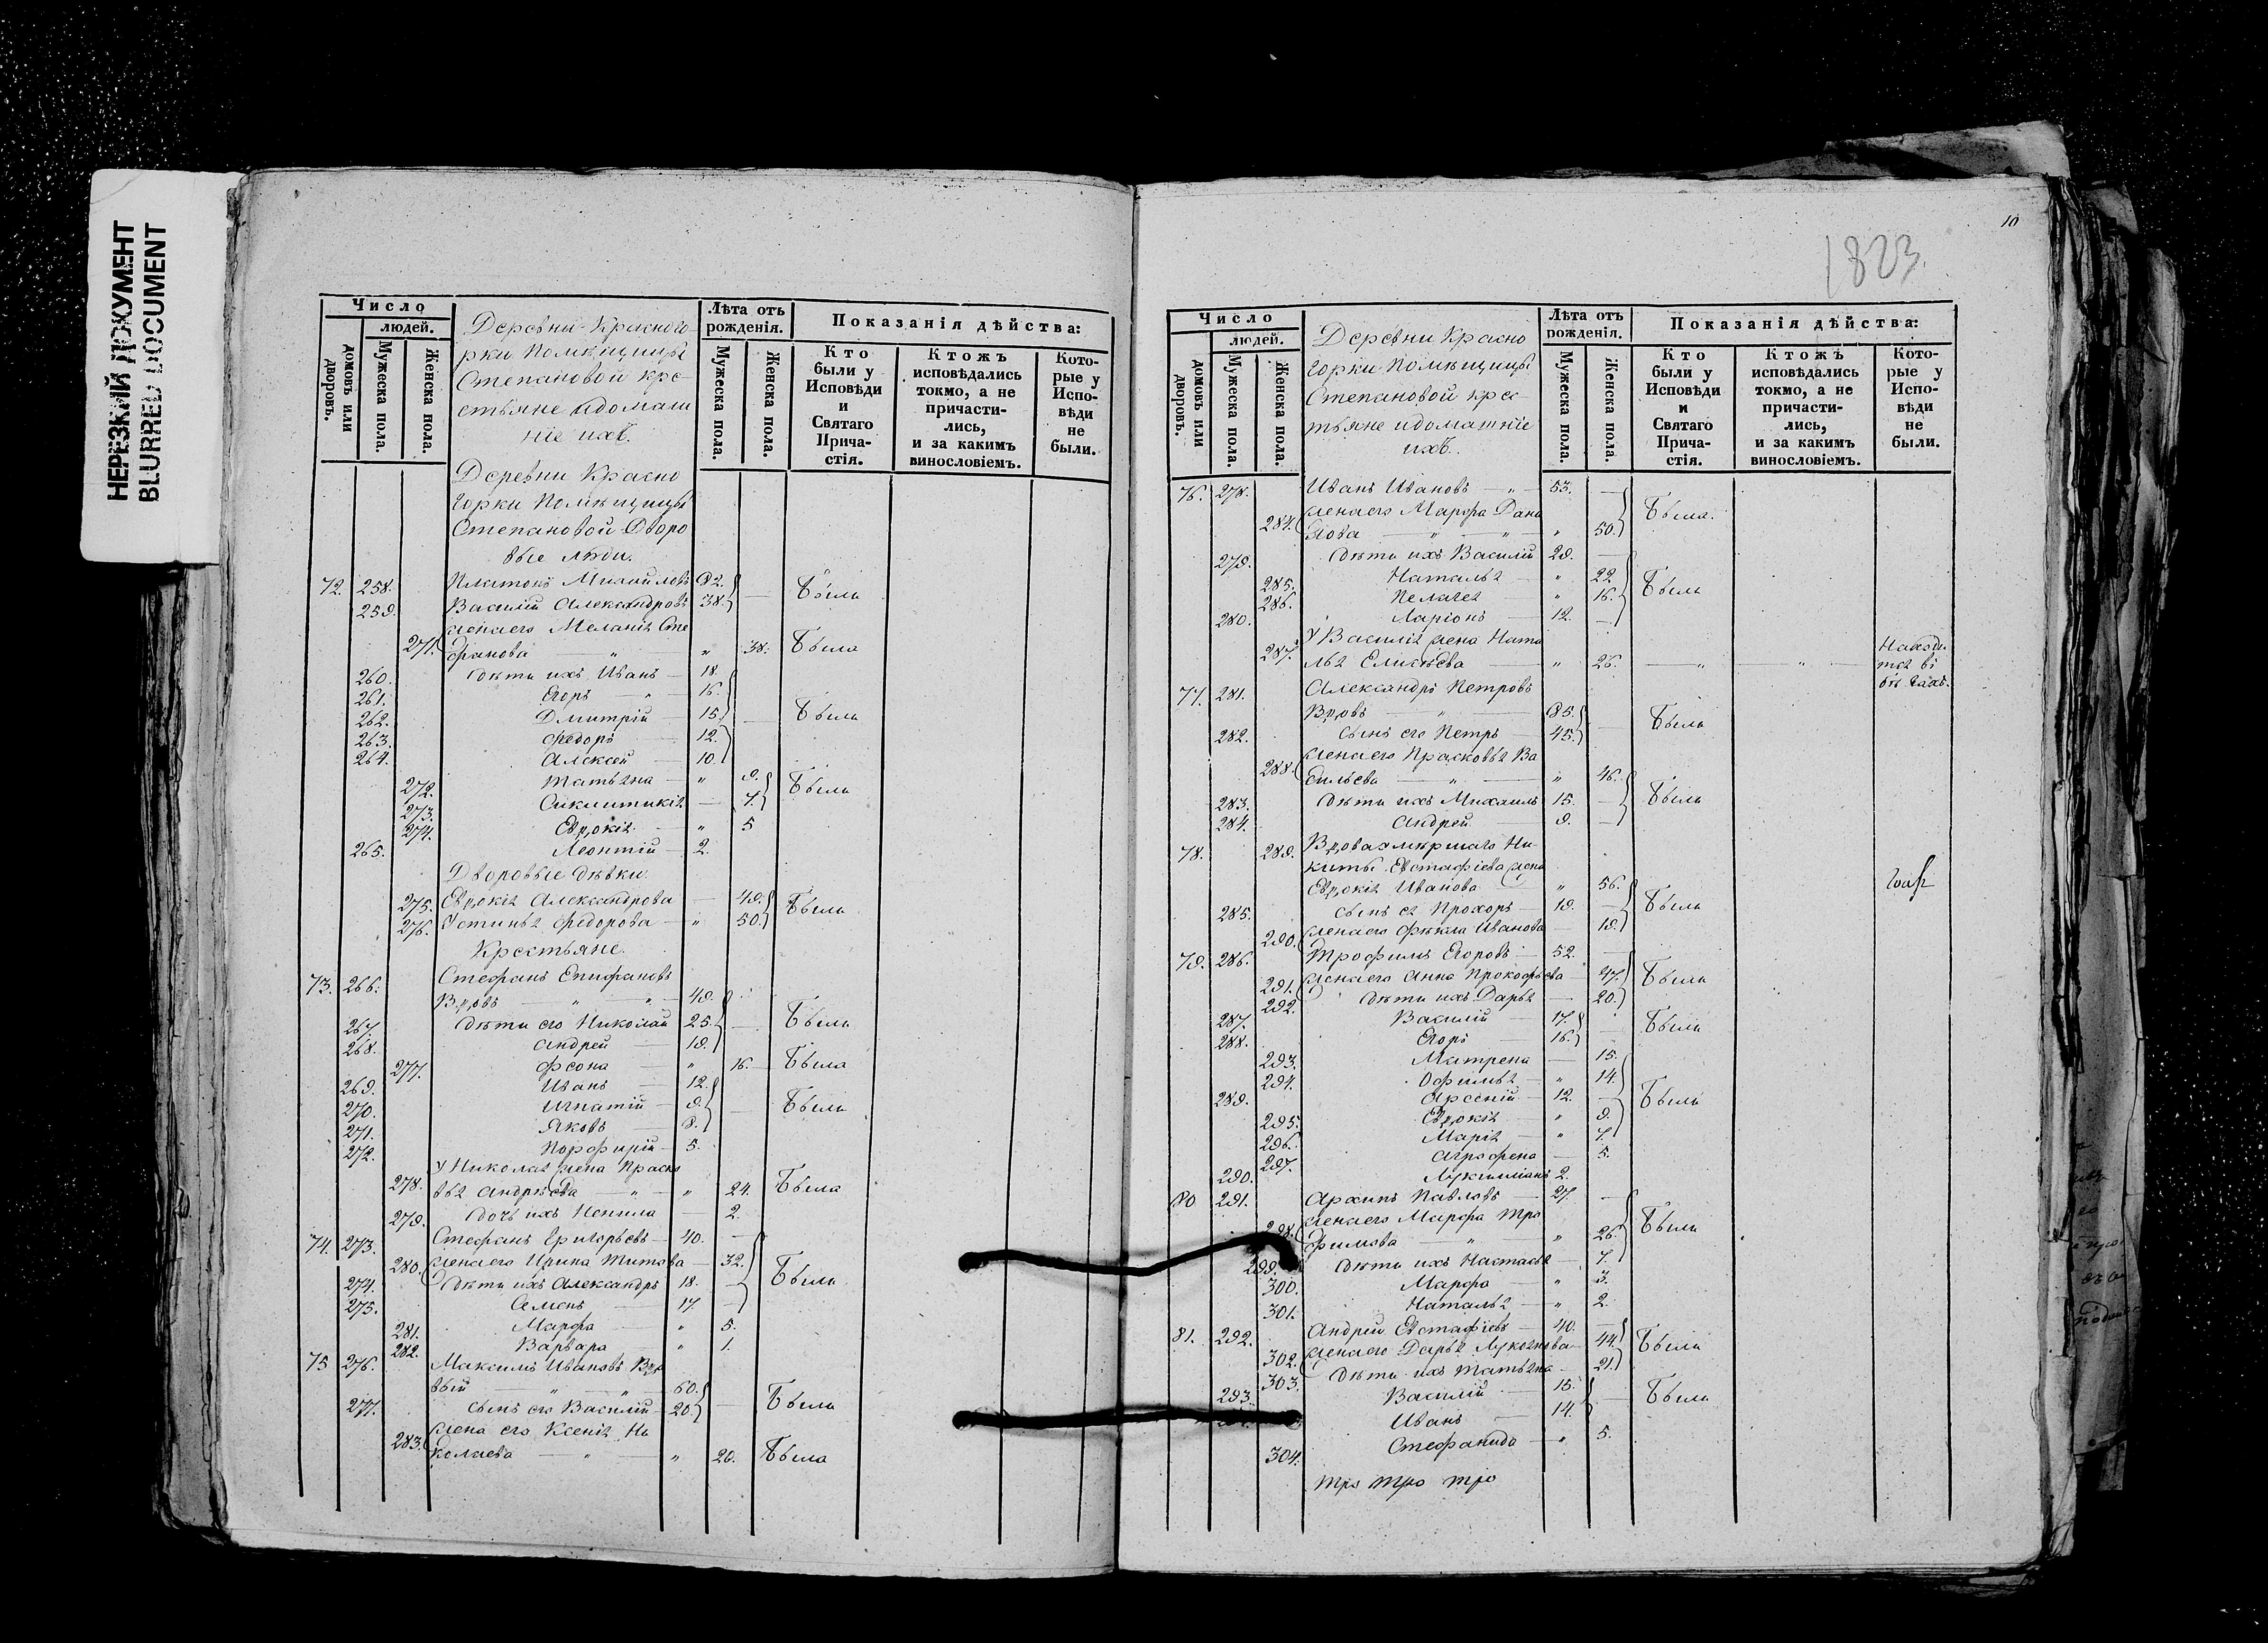 НЕРЕЗКИЙ ДОКУМЕНТ
BLURRED DOCUMENT
Число
людей.
домовъ или дворовъ.
Мужеска пола.
Женска пола.
Деревни Красного
рки Помѣщицы
Степановой кре-
стьяне идомаш
ніе ихъ.
Лѣта отъ
рожденія.
Мужеска пола.
Женска пола.
Показанія дѣйства:
Кто
были у
Исповѣди
и
Святаго
Прича-
стія.
Ктожъ
исповѣдались
токмо, а не
причасти-
лись,
и за какимъ
винословіемъ.
Кото-
рые у
Испо-
вѣди
не
были.
Деревни Красно
горки Помѣщицы
Степановой Дворо
вые люди.
72. 258. Платонъ Михайловъ 82.
259. Василій Александровъ 38. Были
жена его Меланія Сте
271. фанова " " 38. Была
260. Дѣти ихъ Иванъ 18.
261. Егоръ " 16.
262. Дмитрій 15. Были
263. Федоръ 12.
264. Алексей 10.
272. Татьяна " 9. Были
273. 7.
274. Евдокія " 5
265. Леонтій 2.
Дворовые дѣвки.
275. Евдокія Александрова 49. Были
276. Устинья Федорова " 50.
Крестьяне.
73. 266. Стефанъ Епифановъ
Вдовъ " " 49.
267. Дѣти его Николай 25. Были
268. Андрей 19.
277. Фсона " 16. Была
269. Иванъ 12.
270. Игнатій 9. Были
271. Яковъ 8.
272. Порфирій 5.
У Николая жена Праско
278. вья Андрѣева " " 24. Была
279. Дочь ихъ Ненила 2.
74. 273. Стефанъ Григорьевъ 40.
280. жена его Ирина Титова 32.
274. Дѣти ихъ Александръ 18. Были
275. Семенъ 17.
281. Марфа " 5.
282. Варвара " 1.
75 276. Максимъ Ивановъ Вдо
вый " " 60.
277. сынъ его Василій 20. Были
жена его Ксенія Ни
283. колаева " " 20. Была
10
1823.
Число
людей.
домовъ или дворовъ.
Мужеска пола.
Женска пола.
Деревни Красно
горки Помѣщицы
Степановой крес-
тьяне идоматніе
ихъ.
Лѣта отъ
рожденія.
Мужеска пола.
Женска пола.
Показанія дѣйства:
Кто
были у
Исповѣди
и
Святаго
Прича-
стія.
Ктожъ
исповѣдались
токмо, а не
причасти-
лись,
и за какимъ
винословіемъ.
Кото-
рые у
Испо-
вѣди
не
были.
76. 278. Иванъ Ивановъ " 53.
жена его Марфа Дани Была.
284. лова " " " 50.
279. Дѣти ихъ Василій 29.
285. Наталья " 22 Были
286. Пелагея " 16.
280. Ларіонъ 12.
У Василія жена Ната Находи
287. лья Елисѣева " 26. " " тся въ
бѣгахъ.
77. 281. Александръ Петровъ
Вдовъ " 85. Были
282. сынъ его Петръ 45.
жена его Прасковья Ва
288. сильева " " 46.
283. Дѣти ихъ Михаилъ 15. Были
284. Андрей 9.
78. 289. Вдова умершаго Ни-
киты Евстафіева жена
Евдокія Иванова " 56.
285. сынъ ея Прохоръ 19. Были
290. жена его Фекла Иванова 19.
79. 286. Трофимъ Егоровъ 52.
291. жена его Анна Прокофьева 47. Были
292. Дѣти ихъ Дарья 20.
287. Василій 17. Были
288. Егоръ 16.
293. Матрена 15.
294. Офимья " 14.
289. Арсеній 12. Были
295. Евдокія " 9.
296. Марія " 7.
297. Агрофена 5.
290. Лукиліанъ 2.
80 291. Архипъ Павловъ 27.
жена его Марфа Тро Были
298. фимова " " 26.
299. Дѣти ихъ Настасья 7.
300. Марфа " 3.
301. Наталья " 2.
81. 292. Андрей Евстафіевъ 40.
302. жена его Дарья Лукоянова 44. Были
303. Дѣти ихъ Татьяна 21.
293. Василій 15. Были
Иванъ 14.
304. Стефанида " 5.
тро тро тро